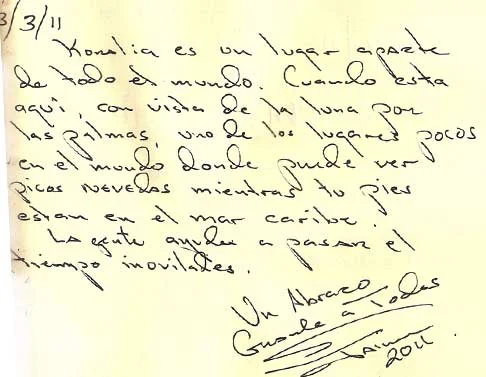 3/3/11
Konalia es un lugar aparte
de todo el mundo. Cuando esta
aquí, con vista de la luna por
las palmas, uno de los lugares pocos
en el mundo donde puede ver
picos nevedos mientras tu pies
estan en el mar caribe.
La gente ayudan a pasar el
tiempo inovilades.
Un Abrazo
Grande a Todas
Jaime
2011.